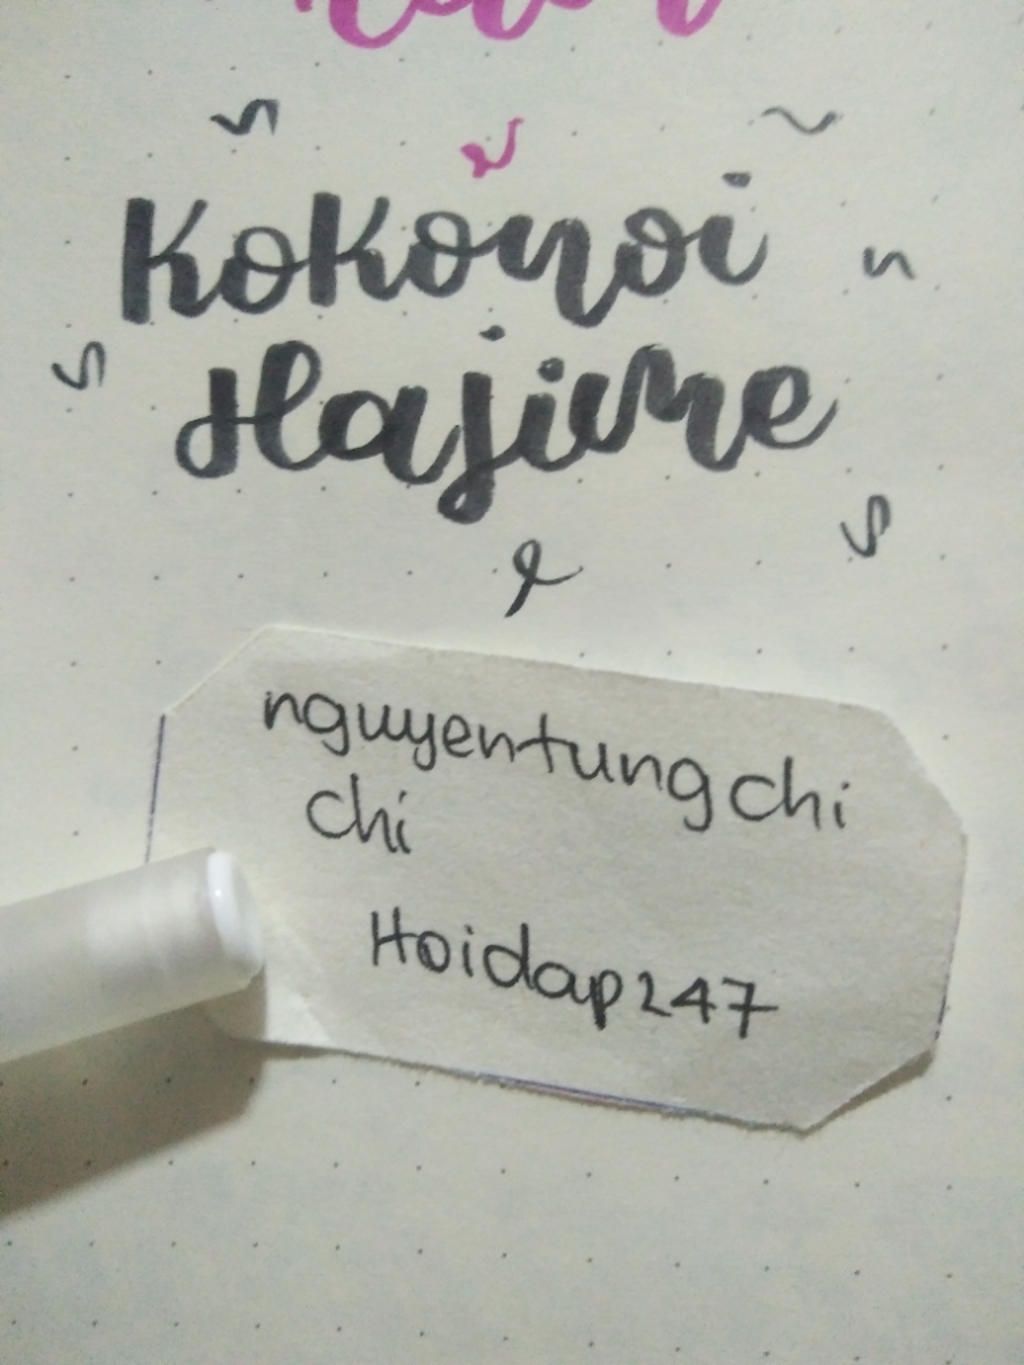 Kokonoi
Hajime
nguyentungchi
chi
Hoidap247